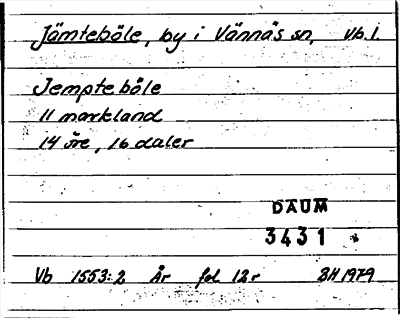 Jämteböle, by i Vännäs sn, Vb. l.
Jempteböle
11 markland
14 öre, 16 daler
DAUM
3431
Vb 1553:2 År fol 12r BH 1979